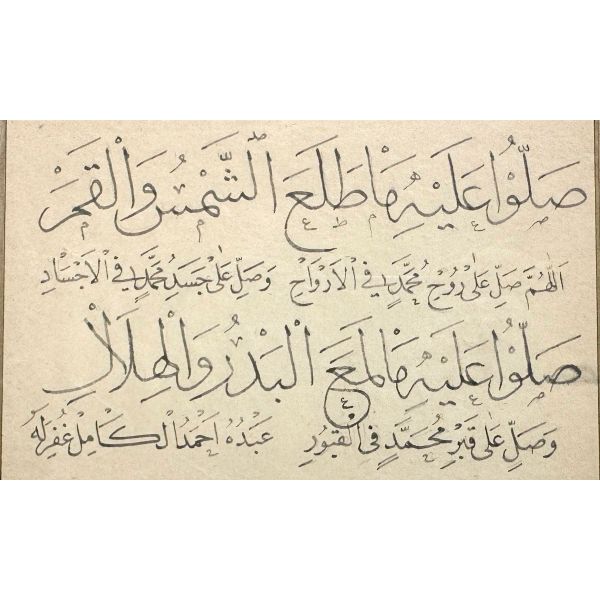 صَلُّوْا عَلَيْهِ مَاْ طَلَعَ الْشَّمْسُ وَالْقَمَرْ
اَللّٰهُمَّ صَلِّ عَلٰى رُوْحِ مُحَمَّدٍ فِي الْاَرْوَاحِ وَصَلِّ عَلٰى جَسَدِ مُحَمَّدٍ فِي الْاَجْسَادِ
صَلُّوْا عَلَيْهِ مَاْ لَمَعَ الْبَدْرُ وَالْهِلَالْ
وَصَلِّ عَلٰى قَبْرِ مُحَمَّدٍ فِي الْقُبُوْرِ عَبْدُهُ اَحْمَدُ الْكَامِلْ غُفِرَلَهُ